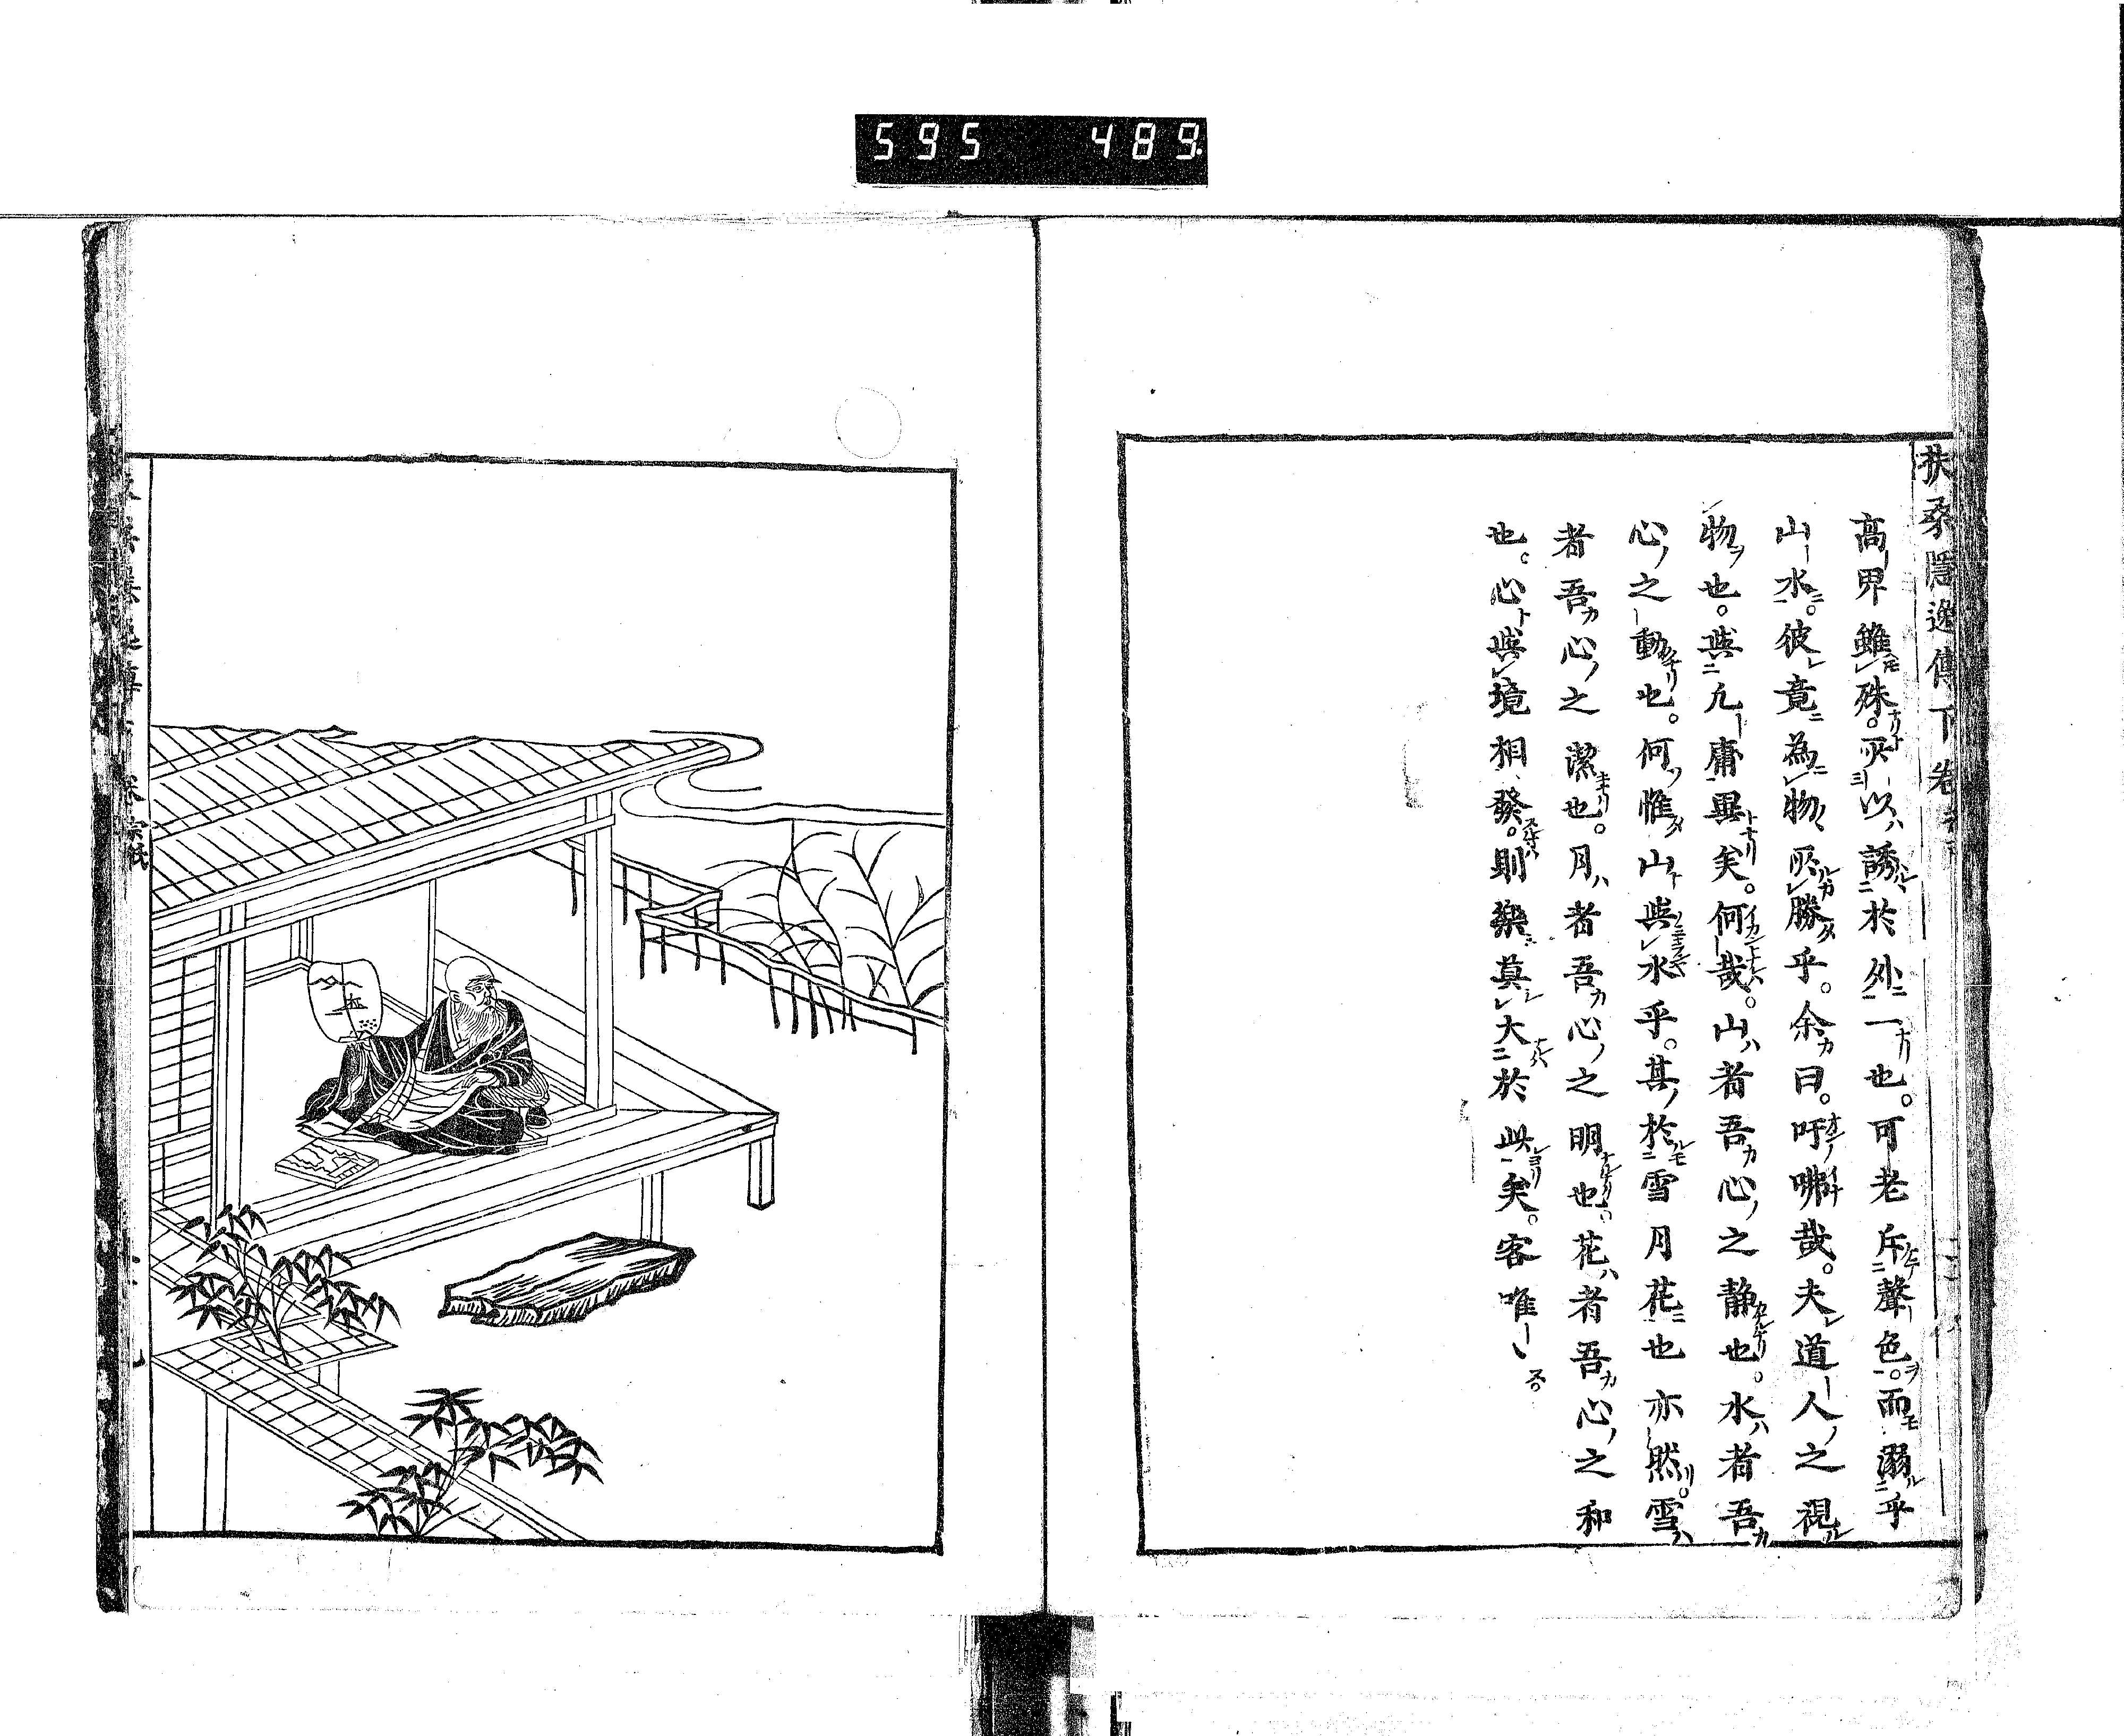 595 489
扶桑隱逸傳下卷
高卑雖殊。所以誘於外一也。可老斥聲色。而溺乎
山水。彼竟為物所勝乎。余曰。吁咈哉。夫道人之視
物也。與凢庸異矣。何哉。山者吾心之静也。水者吾
心之動也。何惟山與水乎。其於雪月花也亦然。雪
者吾心之潔也。月者吾心之明也。花者吾心之和
也。心與境相發。則樂莫大於此矣。客唯〻
宗祇